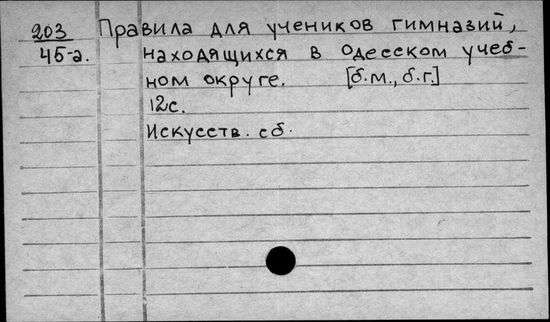 203 Правила для учеников гимназий,
45-а. находящихся в Одесском учеб-
ном округе. [б.м., б.г.]
12с.
Искусств. сб.